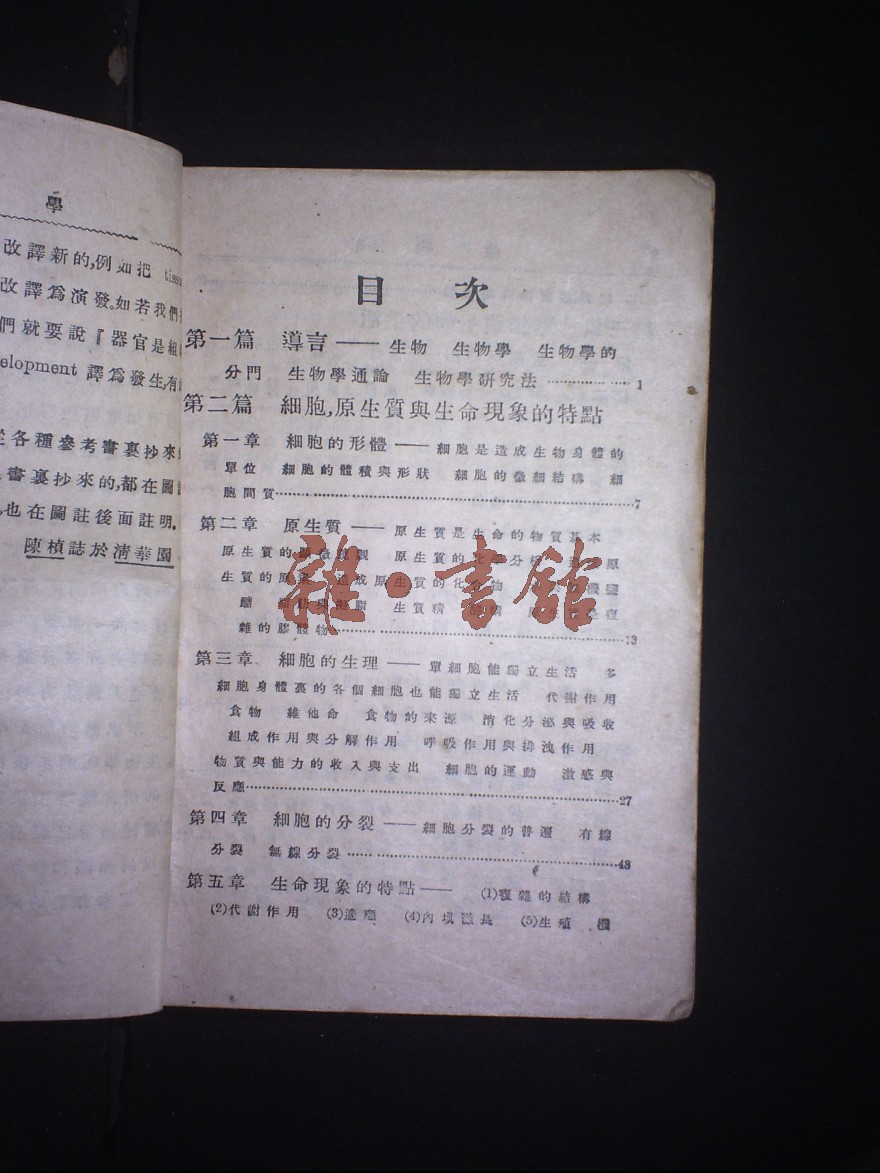 學
改譯新的,例如把 tissu
改譯爲演發。如若我們
們就要說『器官是組
elopment 譯爲發生,有
各種參考書裏抄來
書裏抄來的,都在圖
也在圖註後面註明。
陳楨誌於清華園
目 次
第一篇 導言——生物 生物學 生物學的
分門 生物學通論 生物學研究法……………1
第二篇 細胞,原生質與生命現象的特點
第一章 細胞的形體——細胞是造成生物身體的
單位 細胞的體積與形狀 細胞的微細結構 細
胞間質……………7
第二章 原生質——原生質是生命的物質基本
原生質的 原生質的 分 原
生質的 造成原生質的化合物 機鹽
醣 生質精
雜的膠體物……………13
第三章 細胞的生理——單細胞能獨立生活 多
細胞身體裏的各個細胞也能獨立生活 代謝作用
食物 維他命 食物的來源 消化分泌與吸收
組成作用與分解作用 呼吸作用與排洩作用
物質與能力的收入與支出 細胞的運動 激感與
反應……………27
第四章 細胞的分裂——細胞分裂的普遍 有線
分裂 無線分裂……………48
第五章 生命現象的特點—— (1)複雜的結構
(2)代謝作用 (3)適應 (4)內填滋長 (5)生殖 機
雜·書館